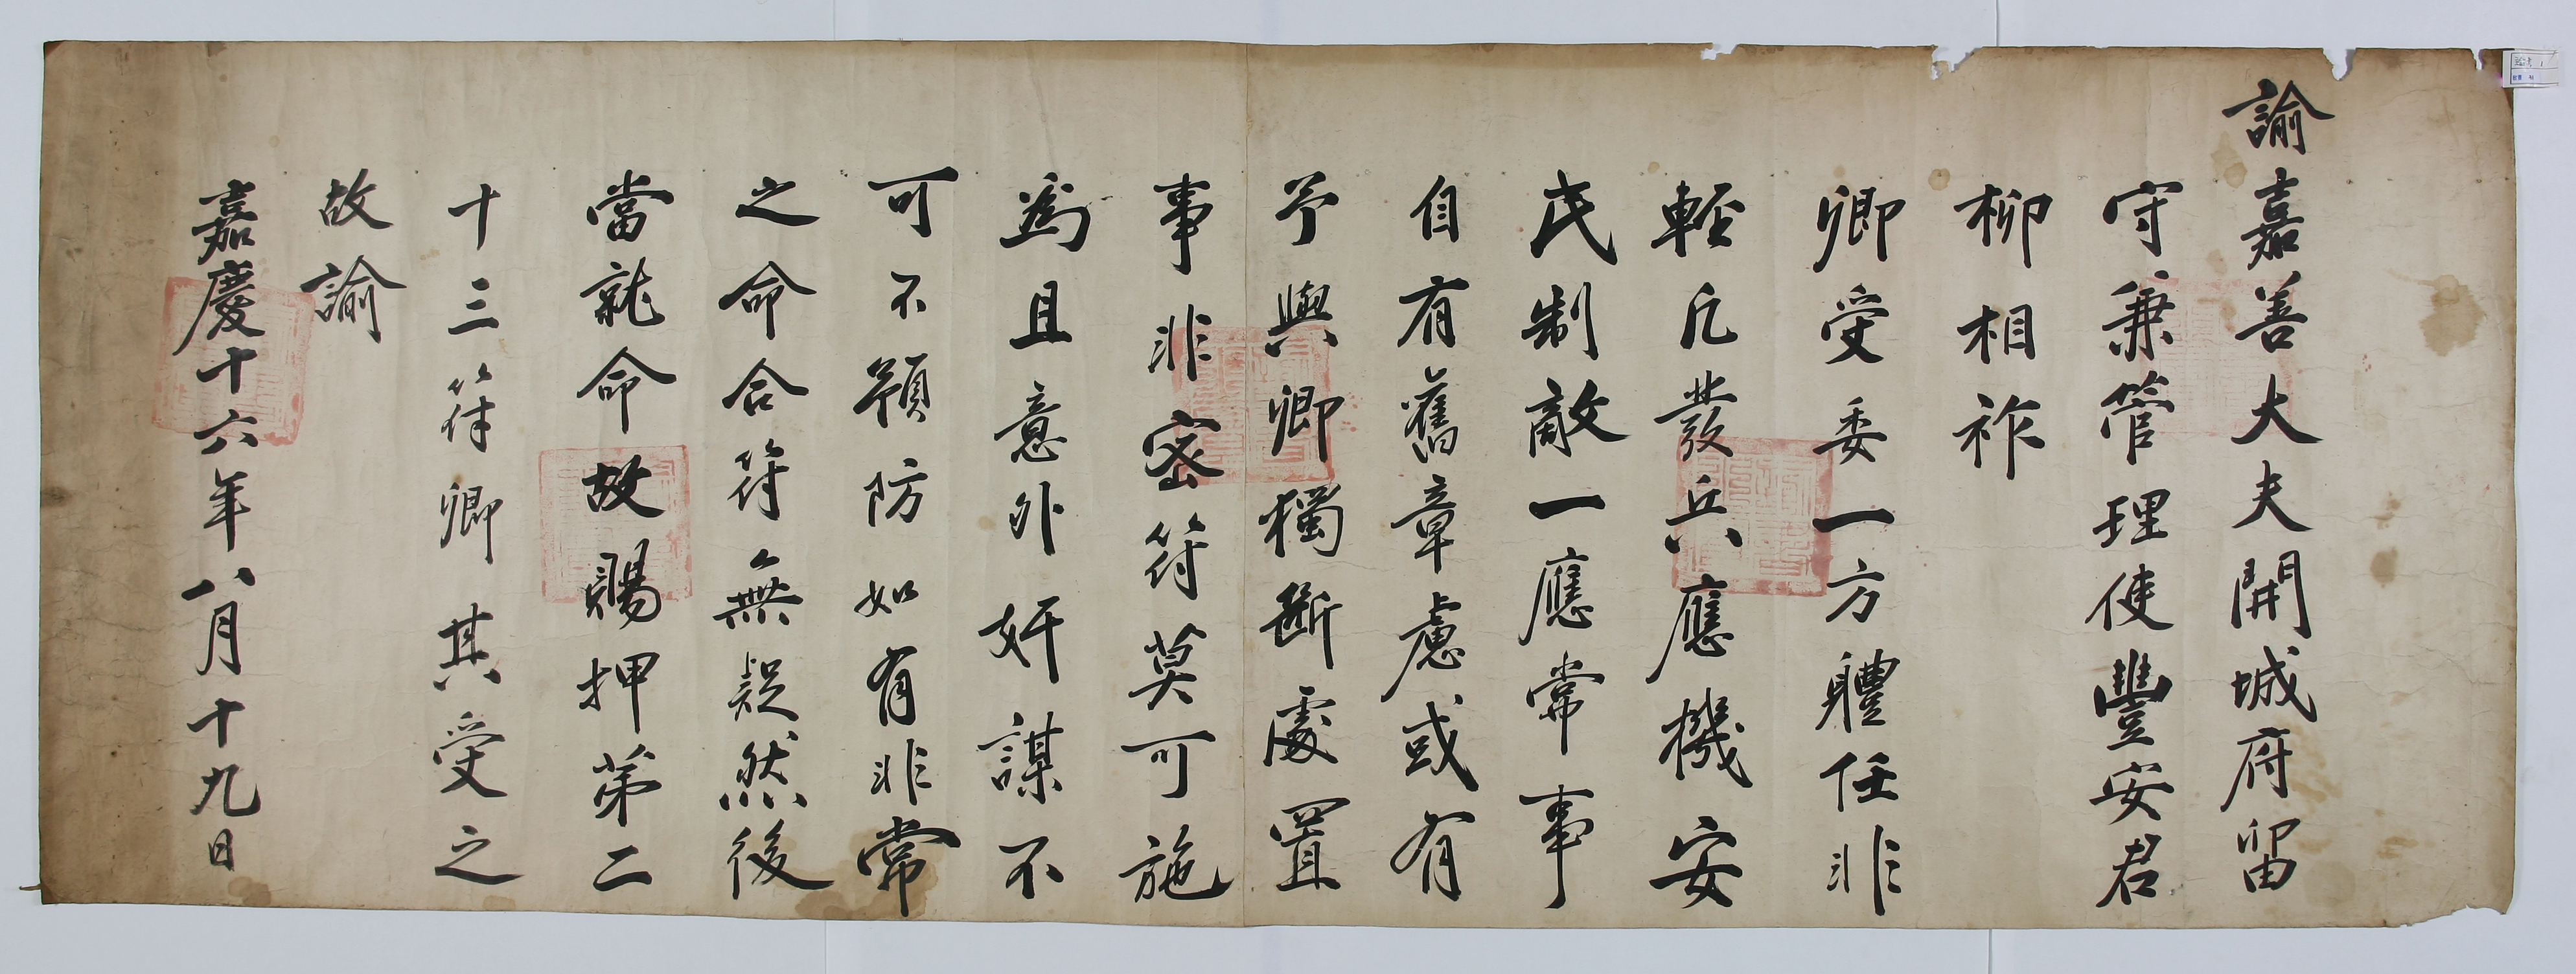 諭嘉善大夫開城府留
守兼管理使豐安君
柳相祚
卿受委一方軆任非
輕凡發兵應機安
民制敵一應常事
自有舊章慮或有
予與卿獨斷處置
事非密符莫可施
爲且意外奸謀不
可不預防如有非常
之命合符無疑然後
當就命故賜押第二
十三符卿其受之
故諭
嘉慶十六年八月十九日